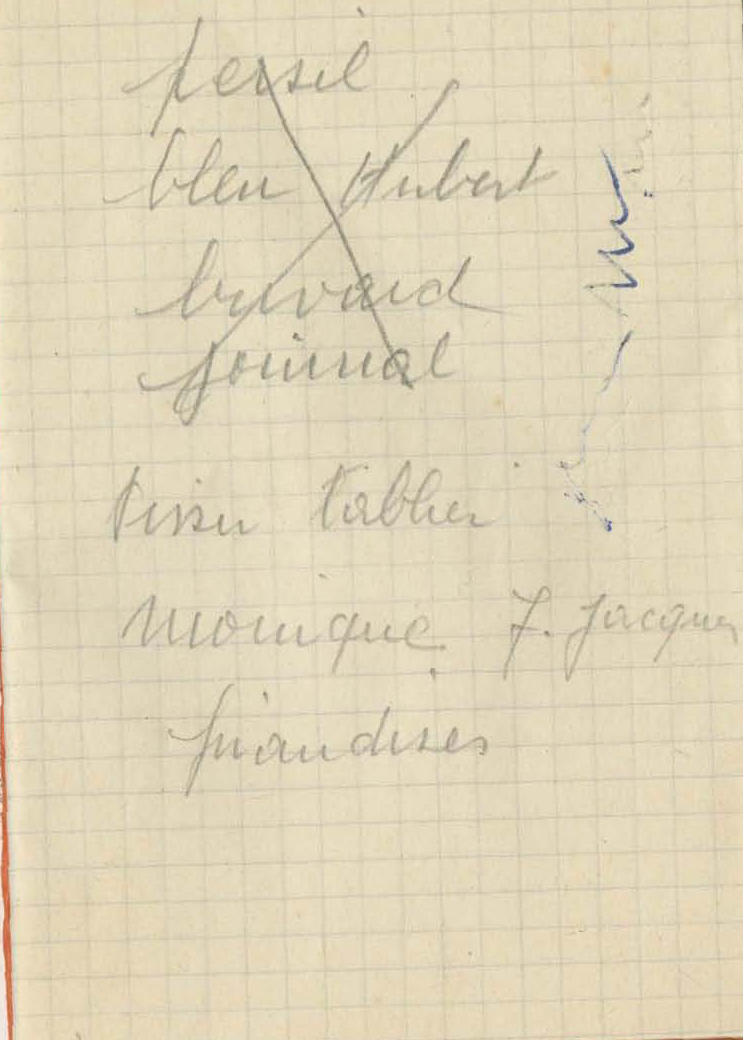 persil
bleu Hubert
buvard
journal
tissu tablier
Monique J. Jacques
friandises